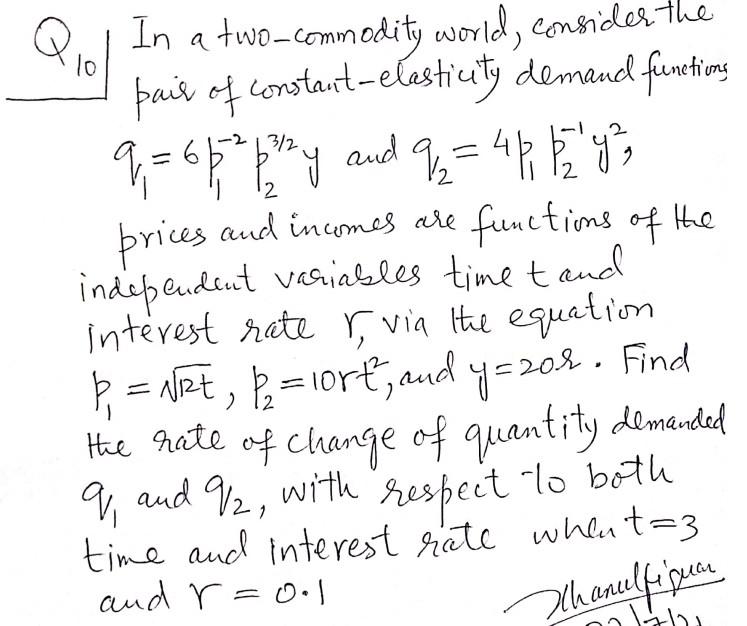 Q10 In a two-commodity world, consider the
pair of constant-elasticity demand functions
q₁ = 6p₁⁻² p₂^3/2 y and q₂ = 4p₁ p₂⁻¹ y²,
prices and incomes are functions of the
independent variables time t and
interest rate r, via the equation
p₁ = √12t, p₂ = 10rt², and y = 20r. Find
the rate of change of quantity demanded
q₁ and q₂, with respect to both
time and interest rate when t=3
and r = 0.1